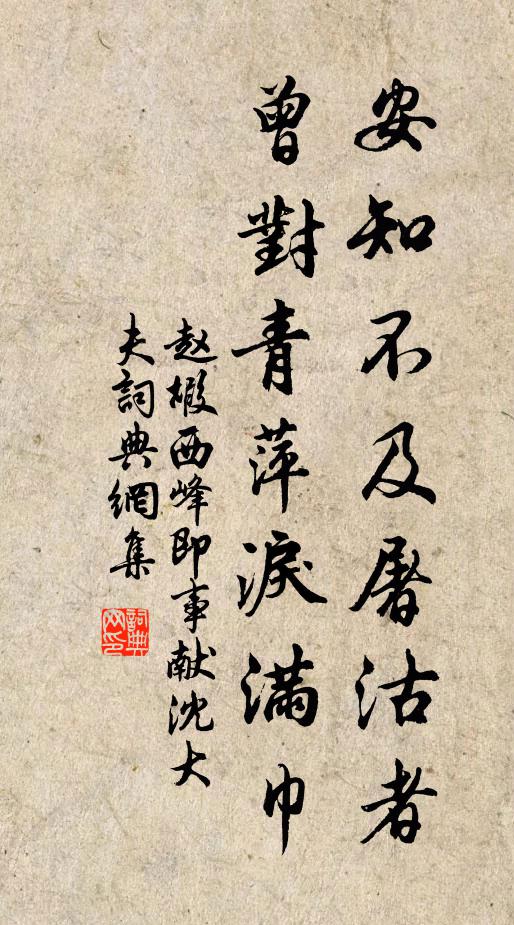 安知不及屠沽者
曾對青萍淚滿巾
赵嘏西峰即事献沈大
夫詞典網集
詞典網印